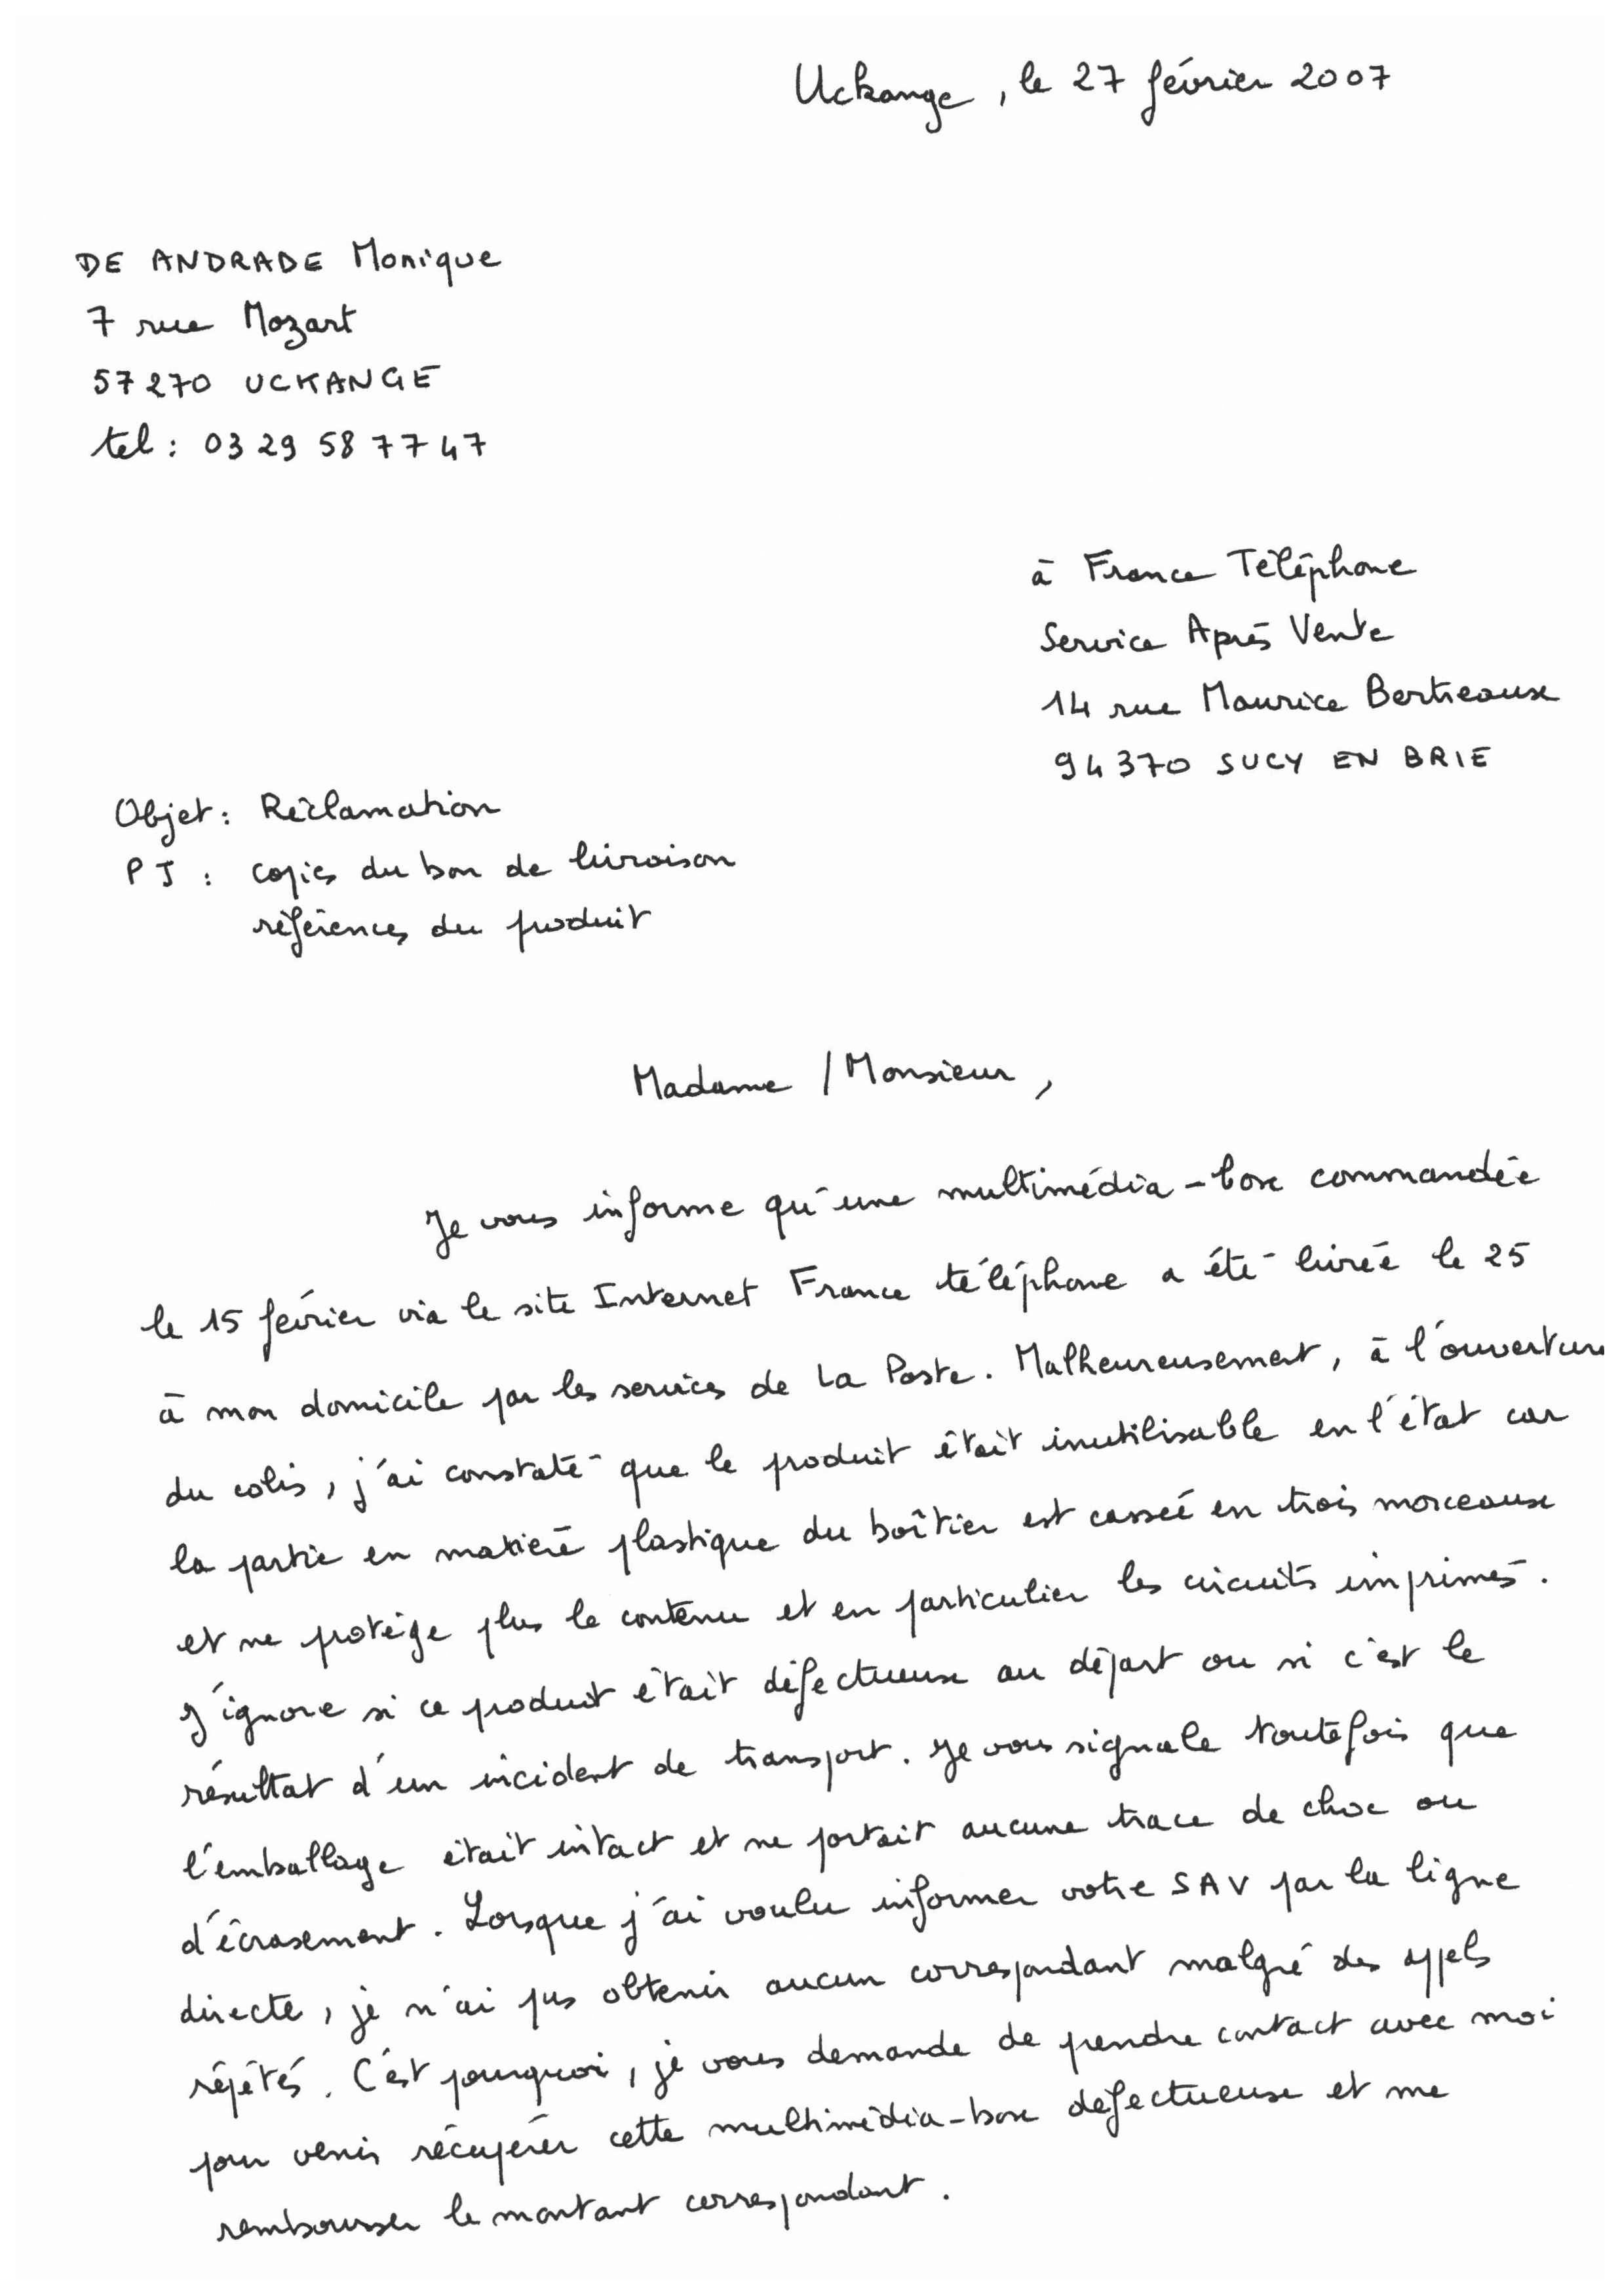 Uckange, le 27 février 2007
DE ANDRADE Monique
7 rue Mozart
57270 UCKANGE
tel : 03 29 58 77 47
à France Téléphone
Service Après Vente
14 rue Maurice Berteaux
94370 SUCY EN BRIE
Objet : Réclamation
PJ : copies du bon de livraison
références du produit
Madame / Monsieur,
Je vous informe qu'une multimédia-box commandée
le 15 février via le site Internet France téléphone a été livrée le 25
à mon domicile par les services de La Poste. Malheureusement, à l'ouverture
du colis, j'ai constaté que le produit était inutilisable en l'état car
la partie en matière plastique du boîtier est cassée en trois morceaux
et ne protège plus le contenu et en particulier les circuits imprimés.
J'ignore si ce produit était défectueux au départ ou si c'est le
résultat d'un incident de transport. Je vous signale toutefois que
l'emballage était intact et ne portait aucune trace de choc ou
d'écrasement. Lorsque j'ai voulu informer votre SAV par la ligne
directe, je n'ai pus obtenir aucun correspondant malgré des appels
répétés. C'est pourquoi, je vous demande de prendre contact avec moi
pour venir récupérer cette multimédia-box défectueuse et me
rembourser le montant correspondant.